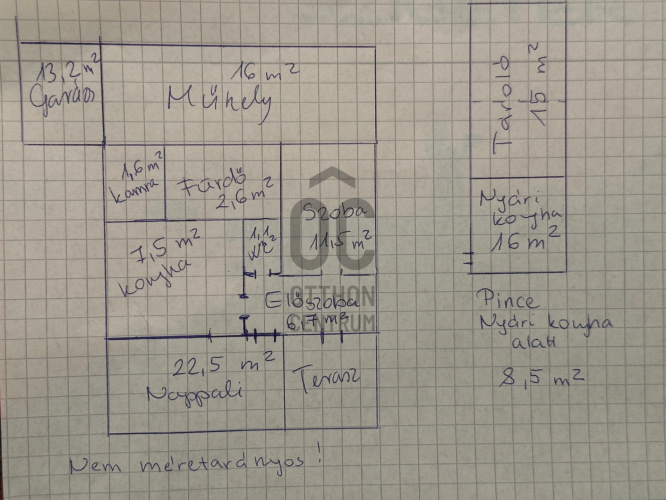 13,2 m²
Garázs
16 m²
Műhely
1,6 m²
kamra
Fürdő
2,6 m²
Szoba
11,5 m²
7,5 m²
konyha
1,1 m²
WC
Előszoba
6,7 m²
22,5 m²
Nappali
Terasz
Nem méretarányos!
Tároló
15 m²
Nyári
konyha
16 m²
Pince
Nyári konyha
alatt
8,5 m²
OC
OTTHON
CENTRUM